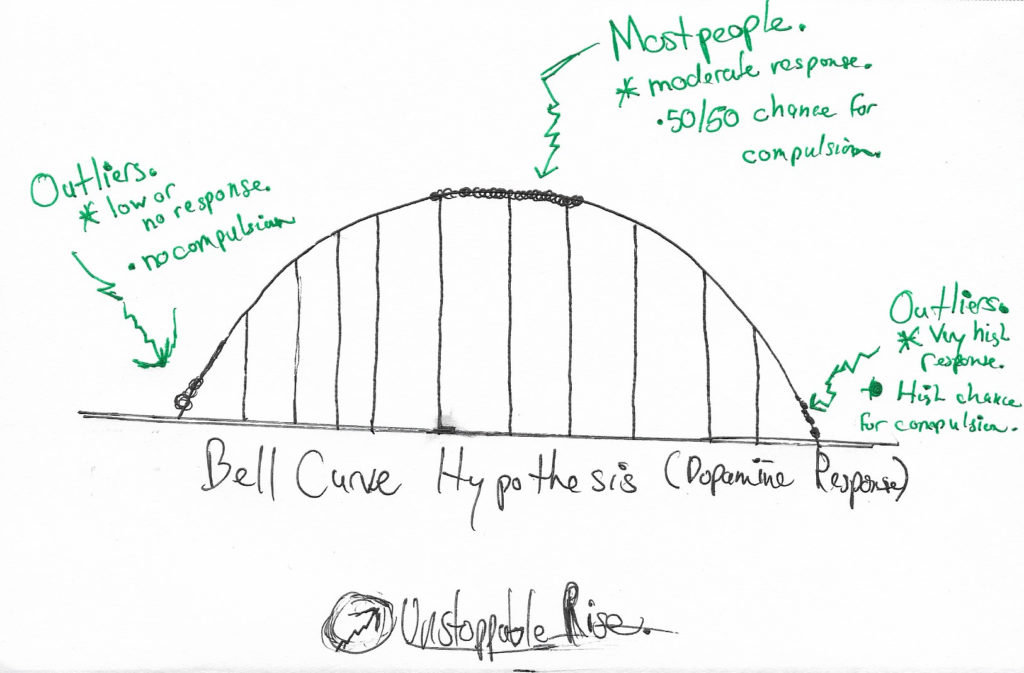 Most people.
* moderate response.
• 50/50 chance for
compulsion.
Outliers.
* low or
no response.
• no compulsion
Outliers.
* Very high
response.
• High chance
for compulsion.
Bell Curve Hypothesis (Dopamine Response)
Unstoppable Rise.